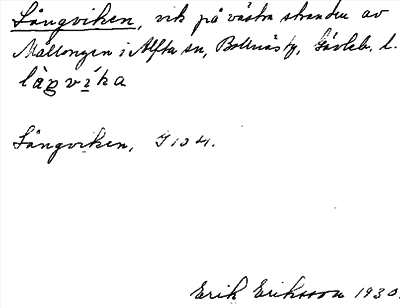 Långviken, vik på västra stranden av
Mållången i Alfta sn, Bollnäs tg, Gävleb. l.
långvika
Långviken, G 104.
Erik Eriksson 1930.